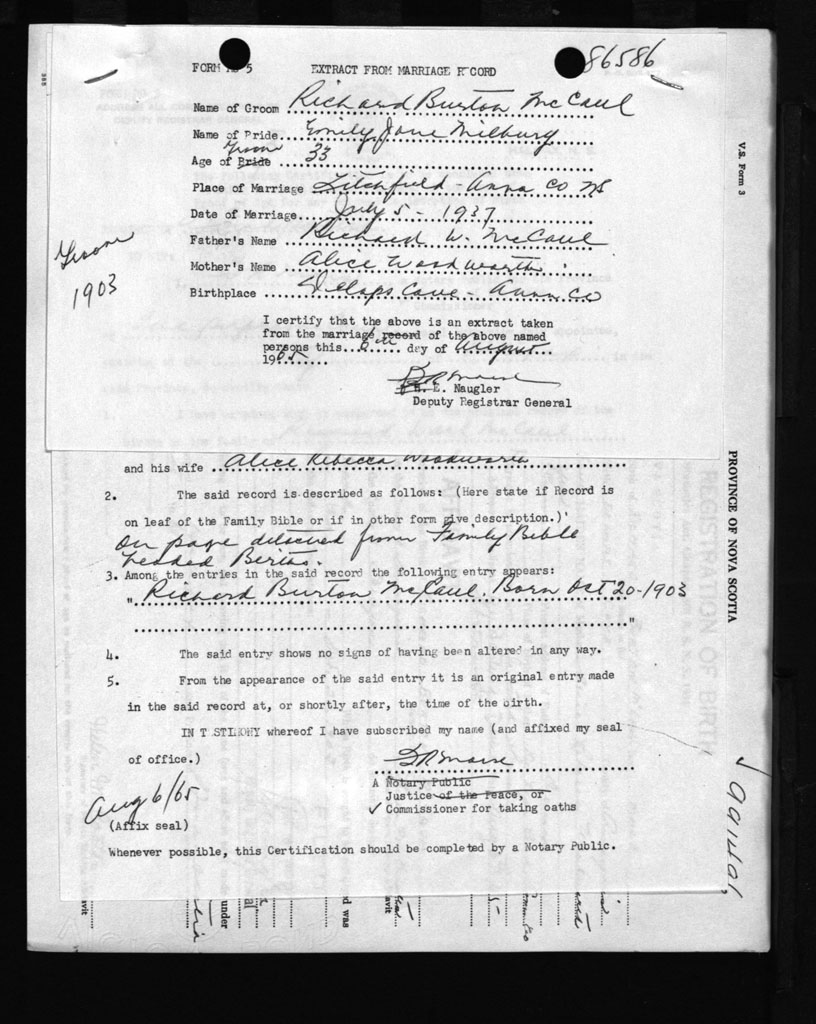 86586
FORM 5 EXTRACT FROM MARRIAGE R CORD
Name of Groom Richard Burton McCaul
Name of Pride Emily Jane Milbury
Groom
Age of Bride 33
Place of Marriage Litchfield - Anna Co NS
Date of Marriage July 5 - 1937
Father's Name Richard W. McCaul
Mother's Name Alice Woodworth
Birthplace Delaps Cove - Anna. Co
Groom
1903
I certify that the above is an extract taken
from the marriage record of the above named
persons this 6th day of August
1965
E. Naugler
Deputy Registrar General
and his wife Alice Rebecca Woodworth
2. The said record is described as follows: (Here state if Record is
on leaf of the Family Bible or if in other form give description.)
On page detached from Family Bible
headed Births.
3. Among the entries in the said record the following entry appears:
" Richard Burton McCaul. Born Oct 20-1903
"
4. The said entry shows no signs of having been altered in any way.
5. From the appearance of the said entry it is an original entry made
in the said record at, or shortly after, the time of the birth.
IN T STIMONY whereof I have subscribed my name (and affixed my seal
of office.)
A Notary Public
Justice of the Peace, or
✓ Commissioner for taking oaths
Aug 6/65
(Affix seal)
Whenever possible, this Certification should be completed by a Notary Public.
V.S. Form 3
PROVINCE OF NOVA SCOTIA
REGISTRATION OF BIRTH
991401
avit
under
d was
avit